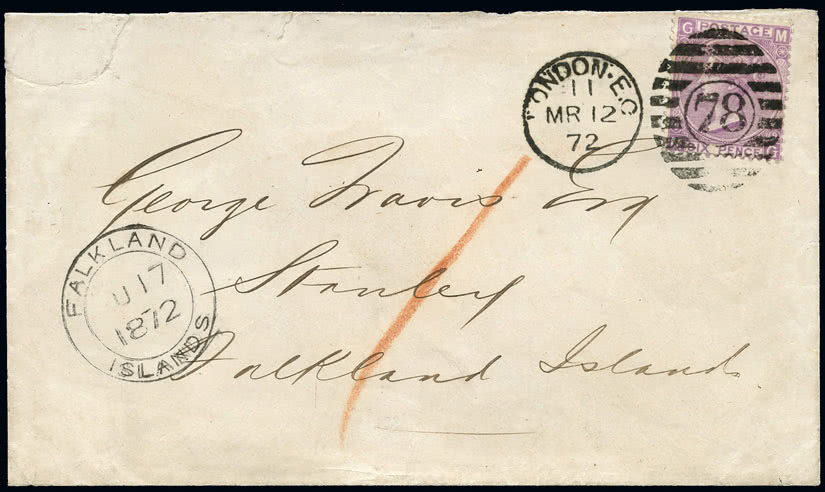 G POSTAGE M
78
SIX PENCE G
LONDON·E.C
11
MR 12
72
George Travis Esq
Stanley
Falkland Islands
FALKLAND
U 17
1872
ISLANDS